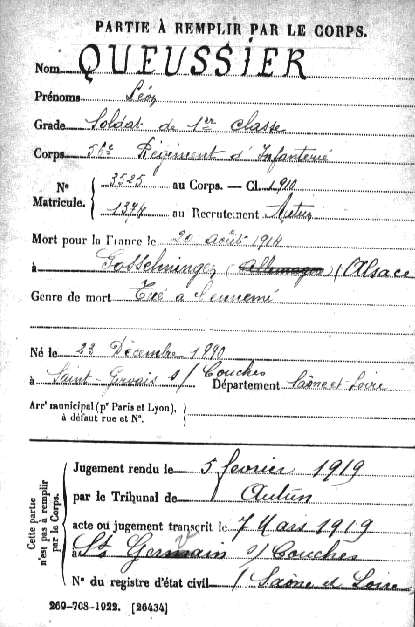 PARTIE À REMPLIR PAR LE CORPS.
Nom QUEUSSIER
Prénoms Léon
Grade Soldat de 1re Classe
Corps 56e Régiment d'Infanterie
N° Matricule. 3525 au Corps. — Cl. 1910
1374 au Recrutement Autun
Mort pour la France le 20 août 1914
à (Allemagne) (Alsace
Genre de mort Tué à l'ennemi
Né le 23 Décembre 1890
à Saint-Gervais s/ Couches Département Saône et Loire
Arrt municipal (pr Paris et Lyon),
à défaut rue et N°.
Cette partie n'est pas à remplir par le Corps.
Jugement rendu le 5 février 1919
par le Tribunal de Autun
acte ou jugement transcrit le 7 Mars 1919
à St Germain s/ Couches
N° du registre d'état civil (Saône et Loire
269-708-1922. [26434]